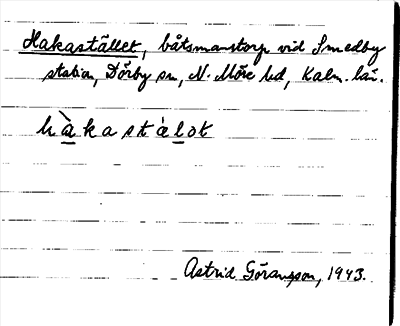 Hakastället, båtsmanstorp vid Smedby
station, Dörby sn, N. Möre hd, Kalm. län.
hàkastálot
Astrid Göransson, 1943.